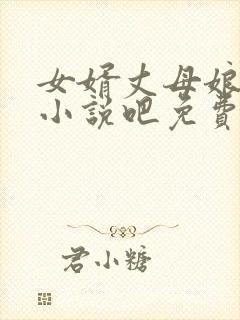 女婿丈母娘
小說吧免費
君小糖